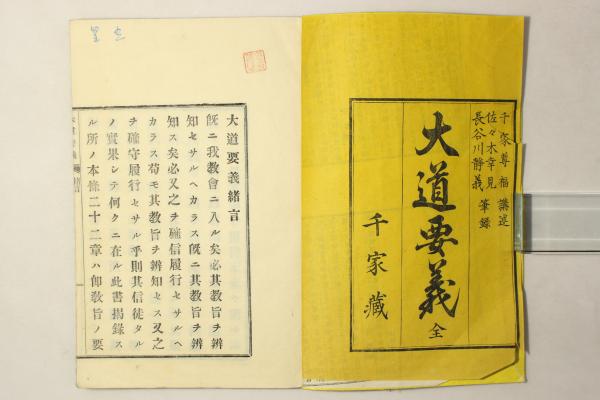 千家尊福 講述
佐々木幸見
長谷川静義 筆録
大道要義 全
千家藏
大道要義緒言
既ニ我教會ニ入ル矣必其教旨ヲ辨
知セサルヘカラス既ニ其教旨ヲ辨
知ス矣必又之ヲ確信履行セサルヘ
カラス苟モ其教旨ヲ辨知セス又之
ヲ確守履行セサル乎則其信徒タル
ノ實果シテ何クニ在ル此書揭錄ス
ル所ノ本條二十二章ハ卽敎旨ノ要